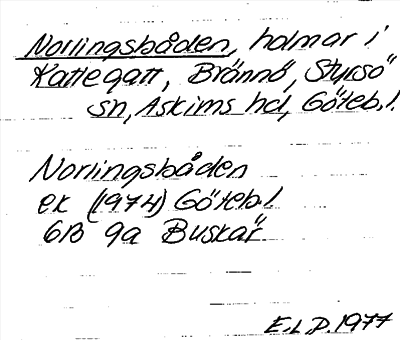 Norlingsbåden, holmar i
Kattegatt, Brännö, Styrsö
sn, Askims hd, Göteb.l.
Norlingsbåden
ek (1974) Göteb.l
6B 9a Buskär
E.L.D. 1977